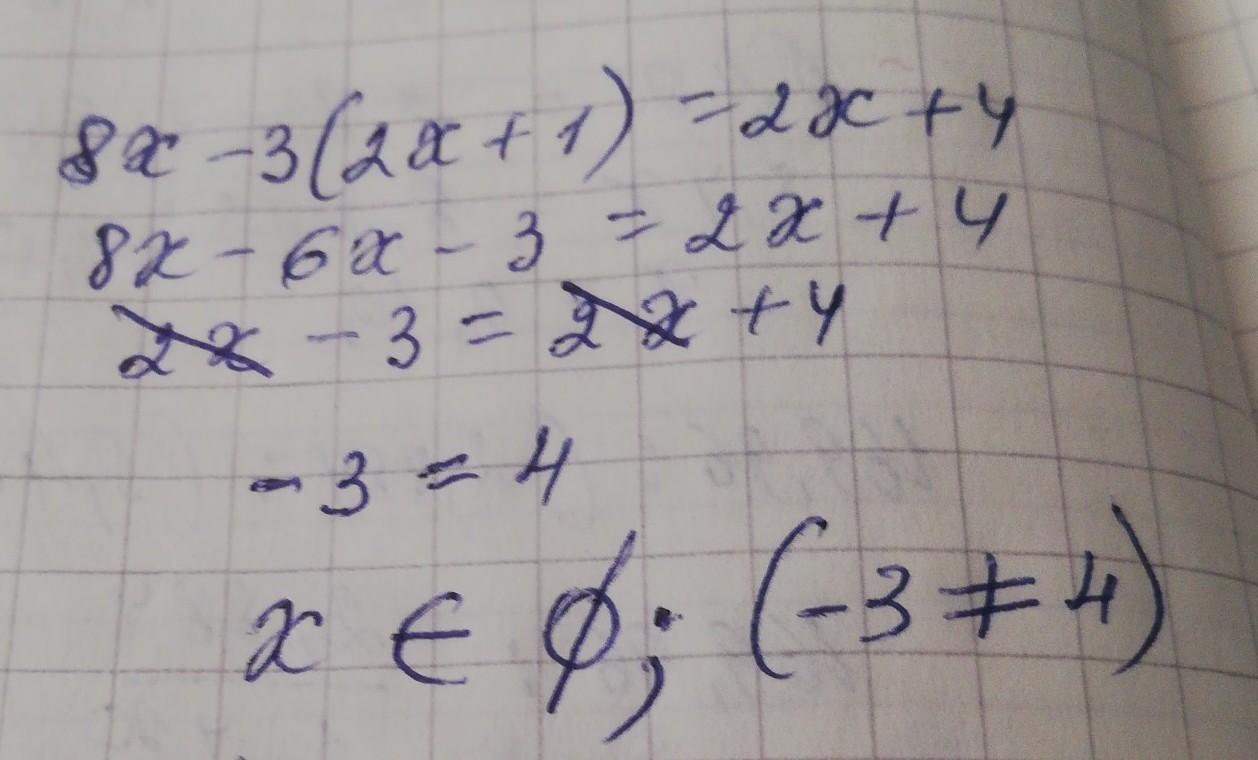 8x - 3(2x + 1) = 2x + 4
8x - 6x - 3 = 2x + 4
2x - 3 = 2x + 4
-3 = 4
x ∈ ∅; (-3 ≠ 4)